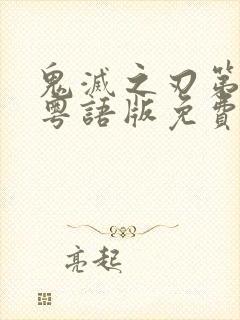 鬼滅之刃第
粵語版免費
亮起